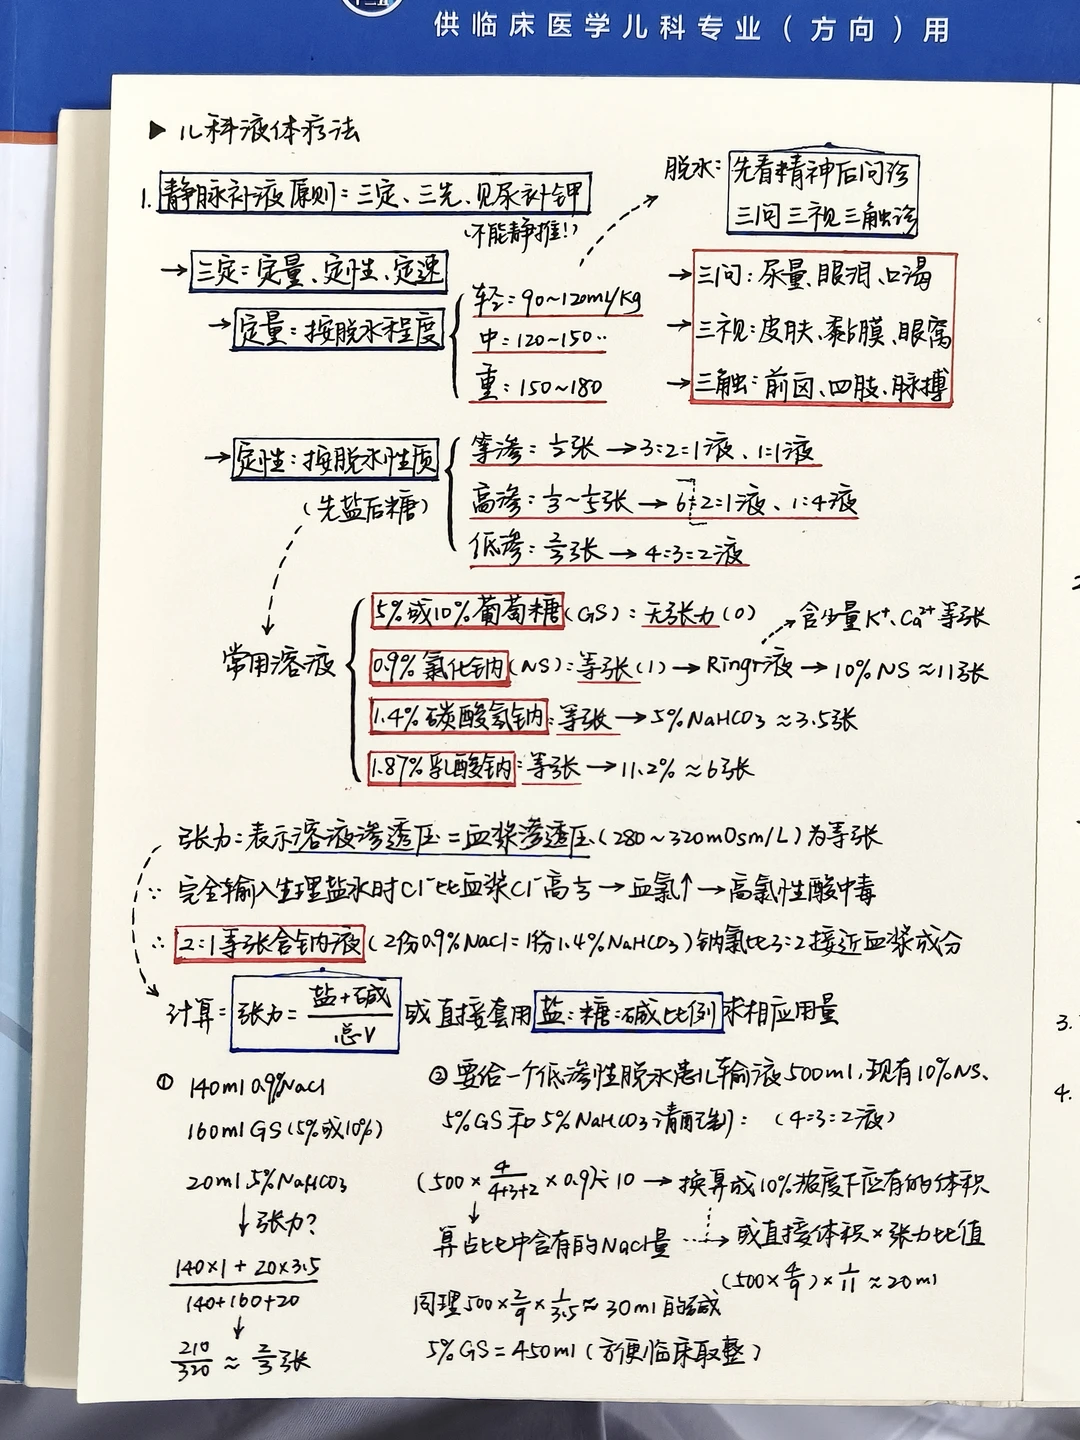 供临床医学儿科专业(方向)用
▶ 儿科液体疗法
1. 静脉补液原则:三定、三先、见尿补钾
(不能静推!)
脱水: 先看精神后问诊
三问三视三触诊
→三定:定量、定性、定速
→定量:按脱水程度
轻:90~120ml/kg
中:120~150··
重:150~180
→三问:尿量、眼泪、口渴
→三视:皮肤、黏膜、眼窝
→三触:前囟、四肢、脉搏
→定性:按脱水性质
(先盐后糖)
等渗:1/2张→3:2:1液、1:1液
高渗:1/3~1/5张→6:2:1液、1:4液
低渗:2/3张→4:3:2液
常用溶液
5%或10%葡萄糖(GS):无张力(0)
含少量K⁺、Ca²⁺等张
0.9%氯化钠(NS):等张(1)→Ringr液→10%NS≈11张
1.4%碳酸氢钠:等张→5%NaHCO3≈3.5张
1.87%乳酸钠:等张→11.2%≈6张
张力:表示溶液渗透压=血浆渗透压(280~320mOsm/L)为等张
∵ 完全输入生理盐水时Cl⁻比血浆Cl⁻高⅓→血氯↑→高氯性酸中毒
∴ 2:1等张含钠液(2份0.9%NaCl:1份1.4%NaHCO3)钠氯比3:2接近血浆成分
计算:张力=盐+碱/总V 或直接套用盐:糖:碱比例求相应用量
① 140ml 0.9%NaCl
160ml GS(5%或10%)
20ml 5%NaHCO3
↓张力?
140×1+20×3.5/140+160+20
↓
210/320≈2/3张
② 要给一个低渗性脱水患儿输液500ml,现有10%NS、
5%GS和5%NaHCO3请配制: (4:3:2液)
(500×4/4+3+2×0.9)÷10→换算成10%浓度下应有的体积
↓
算占比中含有的NaCl量 ···→或直接体积×张力比值
(500×4/9)×1/11≈20ml
同理500×2/9×1/3.5≈30ml的碱
5%GS=450ml(方便临床取整)
3.
4.